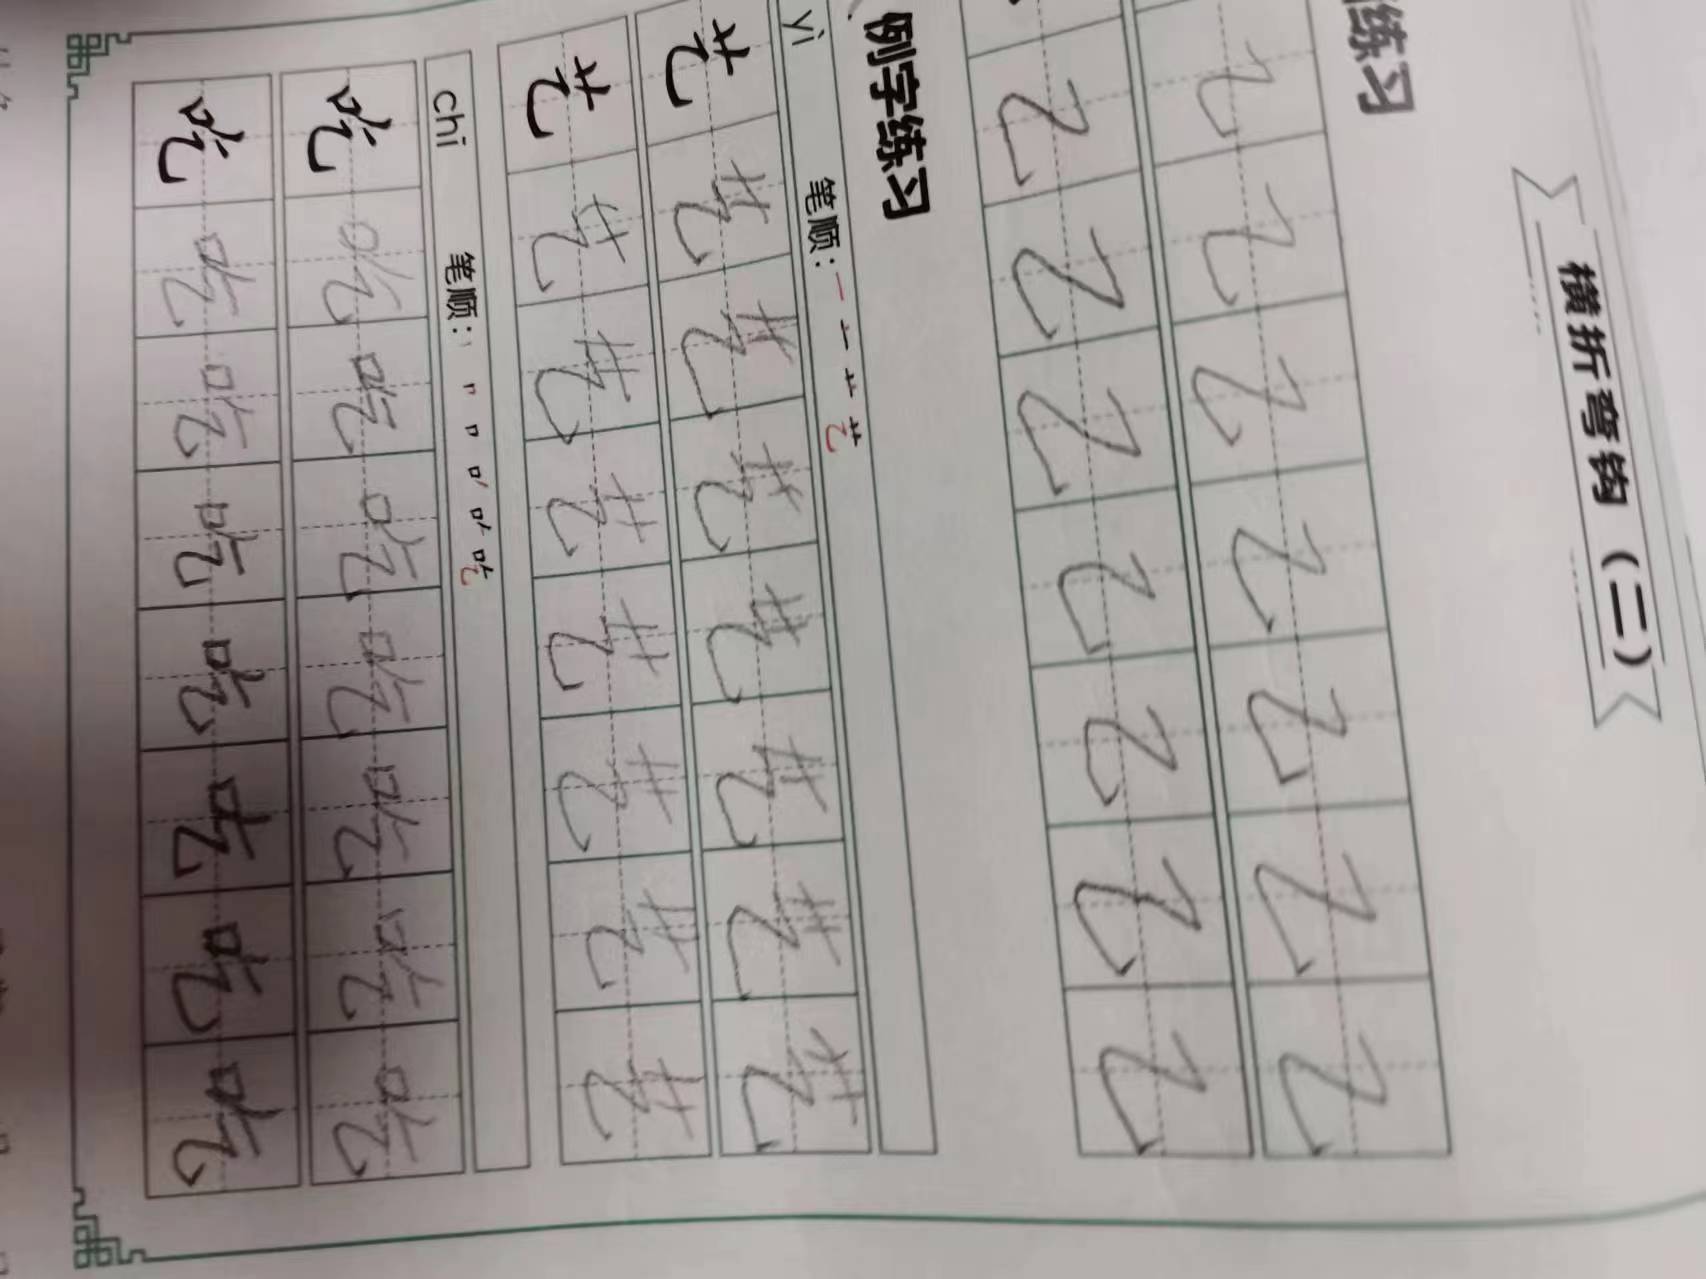 横折弯钩（二）
练习
乙 乙 乙 乙 乙 乙 乙
乙 乙 乙 乙 乙 乙 乙
例字练习
yì 笔顺：一 十 艹 艺
艺 艺 艺 艺 艺 艺 艺 艺
艺 艺 艺 艺 艺 艺 艺 艺
chī 笔顺：丨 冂 口 吃
吃 吃 吃 吃 吃 吃 吃 吃
吃 吃 吃 吃 吃 吃 吃 吃